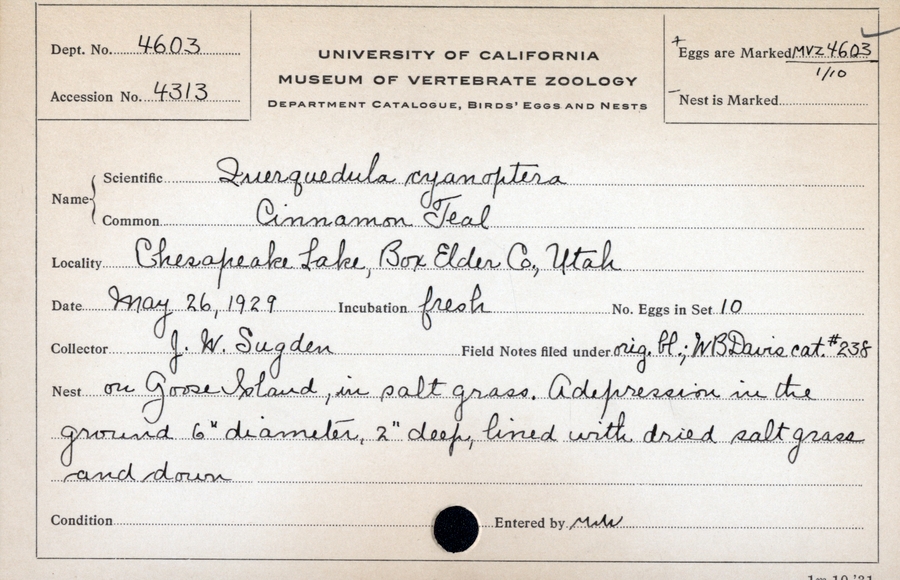 Dept. No. 4603
Accession No. 4313
UNIVERSITY OF CALIFORNIA
MUSEUM OF VERTEBRATE ZOOLOGY
DEPARTMENT CATALOGUE, BIRDS' EGGS AND NESTS
+ Eggs are Marked MVZ 4603
1/10
- Nest is Marked
Name
Scientific Querquedula cyanoptera
Common Cinnamon Teal
Locality Chesapeake Lake, Box Elder Co., Utah
Date May 26, 1929 Incubation fresh No. Eggs in Set 10
Collector J. W. Sugden Field Notes filed under orig. bl.; WBDavis cat. #238
Nest on Goose Island, in salt grass. A depression in the
ground 6" diameter, 2" deep, lined with dried salt grass
and down
Condition Entered by